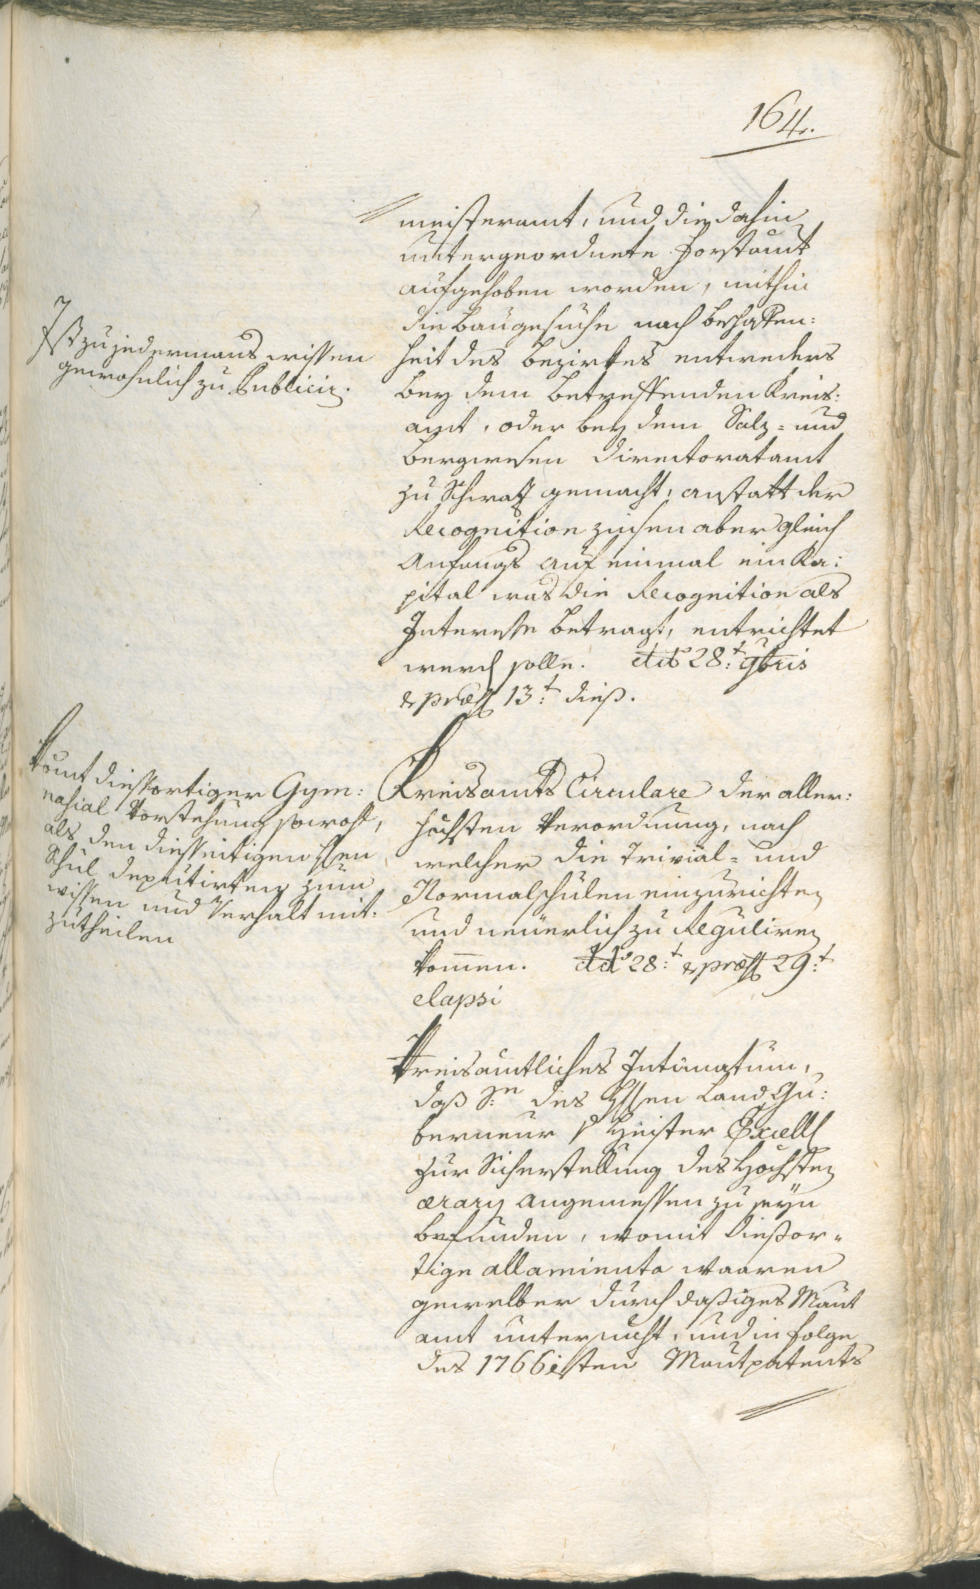 164.
meisteramt, und die dahin
untergeordnete Forstamt
aufgehoben worden, mithin
die Baugesuche nach Beschaffen:
heit des Bezirkes entweders
bey dem betreffenden Kreis:
amt, oder bey dem Salz- und
Bergwesen Directoratamt
zu Schwaz gemacht, anstatt der
Recognition zinsen aber gleich
Anfangs auf einmal ein Ka:
pital was die Recognition als
Interesse betragt, entrichtet
werd solle. ddto 28:t 9bris
& præst 13:t dieß.
Ist zu jedermans wissen
gewohnlich zu Publicir.
Kreisamts Circulare der aller:
höchsten Verordnung, nach
welcher die Trivial- und
Normalschulen einzurichten
und neüerlich zu Reguliren
kommen. ddto 28:t & præst 29:t
elapsi
Kömt diesortiger Gym:
nasial Vorstehung sowohl,
als den diesseitigen Hen
Schul deputirten zum
wissen und Verhalt mit:
zutheilen
Kreisamtliches Intimatum,
daß Sr des Hen Land Gu:
berneur v Heister Excell
zur Sicherstellung des Höchsten
ærary angemessen zu seyn
befunden, womit diesor-
tige allamienta waaren
gewelber durch dasiges Maut
amt untersucht, und in folge
des 1766isten Mautpatents